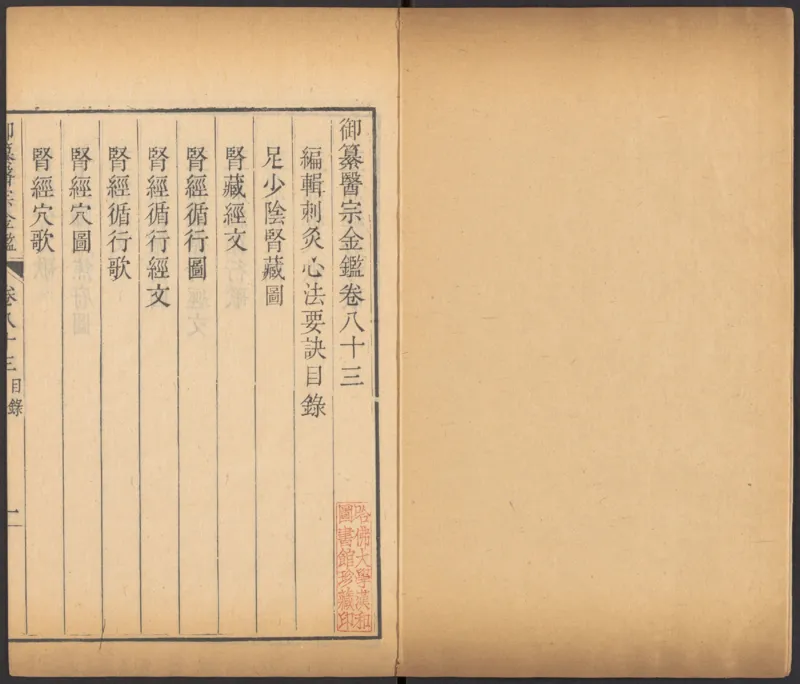 御纂醫宗金鑑卷八十三
編輯刺灸心法要訣目錄
足少陰腎藏圖
腎藏經文
腎經循行圖
腎經循行經文
腎經循行歌
腎經穴圖
腎經穴歌
御纂醫宗金鑑 卷八十三 目錄 一
哈佛大學漢和
圖書館珍藏印